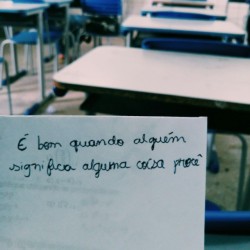 É bom quando alguém
significa alguma coisa procê